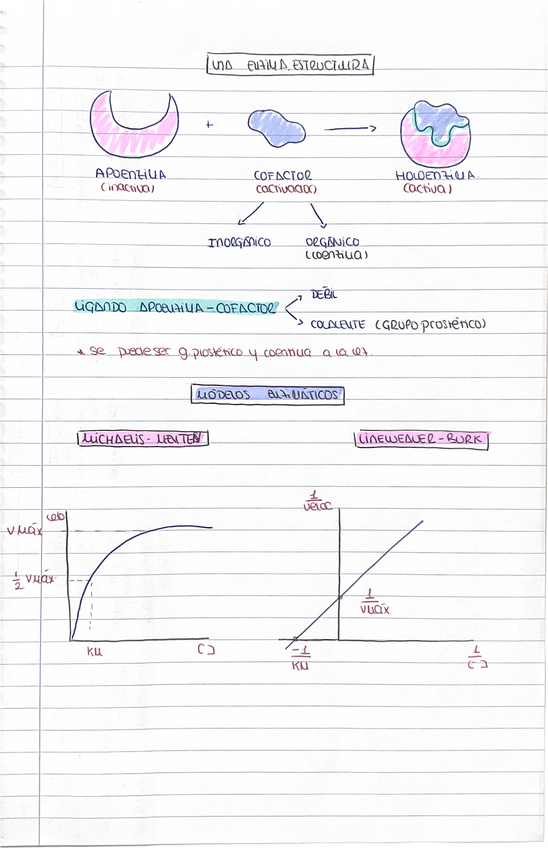 UNA ENZIMA.ESTRUCTURA
+
APOENZIMA COFACTOR HOLOENZIMA
(inactiva) (activador) (activa)
INORGÁNICO ORGÁNICO
(coenzima)
DÉBIL
LIGANDO APOENZIMA-COFACTOR
COVALENTE (GRUPO prostético)
* se puede ser g.prostético y coenzima a la vez.
MODELOS ENZIMÁTICOS
MICHAELIS-MENTEN LINEWEAVER-BURK
1/veloc
VMÁX
1/2 VMÁX
1/VMÁX
KM [ ] -1/KM 1/[ ]